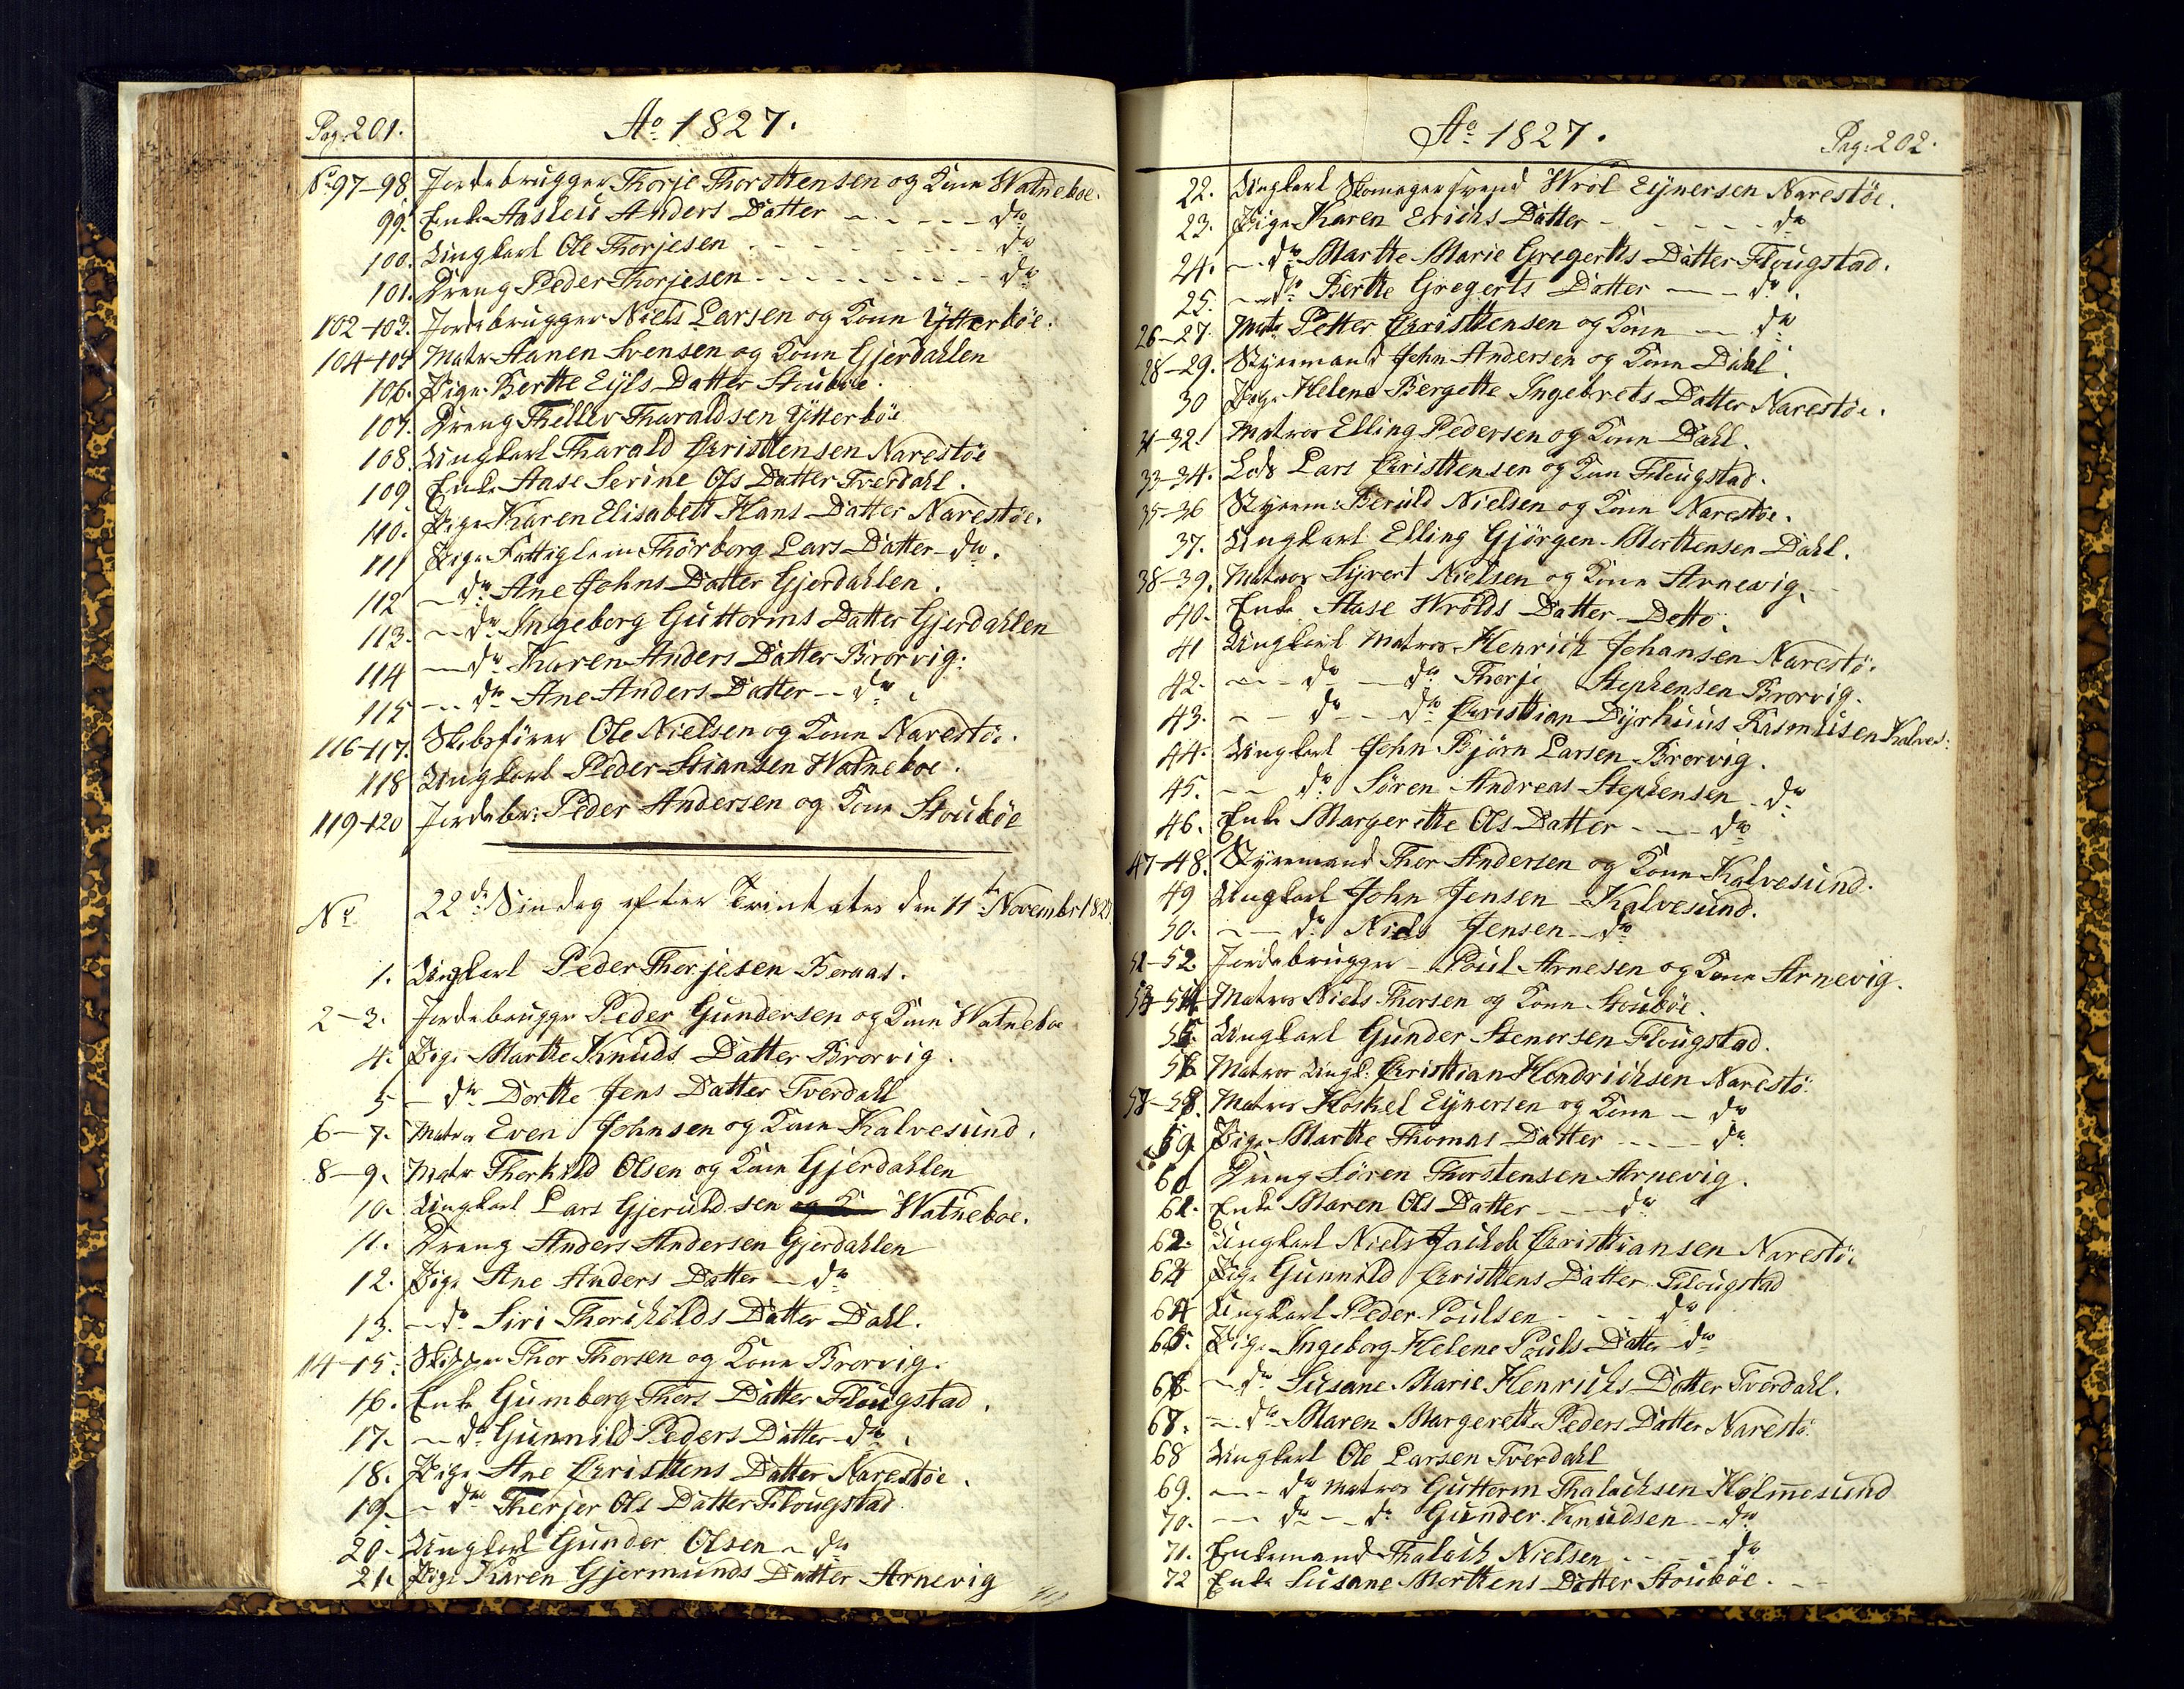 Pag: 201. Ao 1827.
No 97-98 Jordebrugger Thorje Thorstensen og Kone Watneboe.
99. Enke Aasleu Anders Datter - - - - - do
100. Ungkarl Ole Thorjesen - - - - - do
101. Dreng Peder Thorjesen - - - - - do
102-103. Jordebrugger Niels Larsen og Kone Ytterböe.
104-105 Matr Aanen Svensen og Kone Gjerdahlen
106. Pige Berthe Eyls Datter Stouböe.
107. Dreng Thellev Tharaldsen Ytterböe
108. Ungkarl Tharald Christensen Narestöe
109 Enke Aase Serine Ols Datter Tverdahl.
110. Pige Karen Elisabett Hans Datter Narestöe.
111 Pige Fattiglem Thorborg Lars Datter - do.
112 - do Ane Johns Datter Gjerdahlen.
113. - do Ingeborg Guttorms Datter Gjerdahlen
114 - do Karen Anders Datter Brorvig.
115 - do Ane Anders Datter - - do.
116-117. Skibsförer Ole Nielsen og Kone Narestöe.
118 Ungkarl Peder Stiansen Watneboe.
119-120 Jordebr: Peder Andersen og Kone Stouböe
No 22de Söndag efter Trinitatis den 11te Novembr 1827
1. Ungkarl Peder Thorjesen Beraas.
2-3. Jordebrugger Peder Gundersen og Kone Watneboe
4. Pige Marthe Knuds Datter Brorvig.
5 - do Dorthe Jens Datter Tverdahl
6-7. Matros Even Johnsen og Kone Kalvesund.
8-9. Matr Thorkild Olsen og Kone Gjerdahlen
10. Ungkarl Lars Gjeruldsen og Ko Watneboe.
11. Dreng Anders Andersen Gjerdahlen
12. Pige Ane Anders Datter - do
13. - do Siri Thorchilds Datter Dahl.
14-15. Skipper Thor Thorsen og Kone Brorvig.
16. Enke Gumborg Thors Datter Flougstad.
17. - do Gunnild Peders Datter - do.
18. Pige Ane Christens Datter Narestöe.
19. - do Therjer Ols Datter Flougstad
20. Ungkarl Gunder Olsen - do
21. Pige Karen Gjermunds Datter Arnevig
Ao 1827. Pag: 202.
22. Ungkarl Skomagersvend Wrol Eynersen Narestöe.
23. Pige Karen Erichs Datter - - - - - do
24. - do Marthe Marie Gregerts Datter Flougstad.
25. - do Berthe Gregerts Datter - - do.
26-27. Matr Petter Christensen og Kone - - do
28-29. Styrmand John Andersen og Kone Dahl.
30 Pige Helene Bergette Ingebrets Datter Narestöe.
31-32. Matros Elling Pedersen og Kone Dahl.
33-34. Lods Lars Christensen og Kone Flougstad.
35-36 Styrm: Beruld Nielsen og Kone Narestöe.
37. Ungkarl Elling Gjörgen Morttensen Dahl.
38-39. Matros Syvert Nielsen og Kone Arnevig.
40. Enke Aase Wrolds Datter - Detto.
41 Ungkarl Matros Henrich Johansen Narestö.
42. - - do - do Thorje Stephensen Brorvig.
43. - - do - do Christian Dyrhuus Rasmusen Kalves:
44. Ungkarl John Bjørn Larsen Brorvig.
45. - - do Sören Andreas Stephensen - do
46. Enke Margerethe Ols Datter - - - do
47-48. Styrmand Thor Andersen og Kone Kalvesund.
49 Ungkarl John Jensen - Kalvesund.
50. - - do Niels Jensen - do
51-52. Jordebrugger - Poul Arnesen og Kone Arnevig.
53-54 Matros Niels Thorsen og Kone Stouböe.
55. Ungkarl Gunder Stenersen Flougstad.
56 Matros Ungk: Christian Hendrichsen Narestö.
57-58. Matros Hoskel Eynersen og Kone - do
59. Pige Marthe Thomas Datter - - - do
60 Dreng Sören Thorstensen Arnevig.
61. Enke Maren Ols Datter - - - do
62. Ungkarl Niels Jacob Christiansen Narestö.
63 Pige Gunnild Christens Datter Flougstad
64 Ungkarl Peder Poulsen - - - do
65. Pige Ingeborg Helene Pouls Datter do
66. - do Susane Marie Henrichs Datter Tverdahl.
67. - do Maren Margerethe Peders Datter Narestö.
68 Ungkarl Ole Larsen Tverdahl
69. - - do Matros Guttorm Thalachsen Holmesund
70. - - do - do Gunder Knudsen - - do
71. Enkemand Thalach Nielsen - - - do
72 Enke Susane Morttens Datter Stouböe. - -